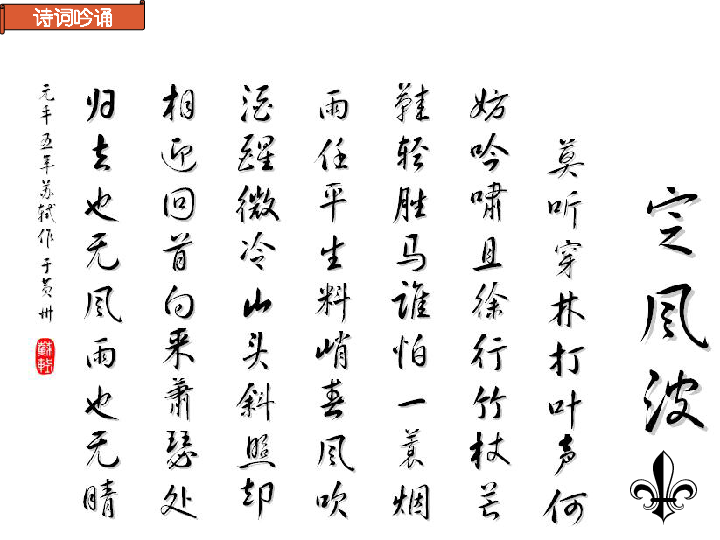 诗词吟诵
定风波
莫听穿林打叶声何
妨吟啸且徐行竹杖芒
鞋轻胜马谁怕一蓑烟
雨任平生料峭春风吹
酒醒微冷山头斜照却
相迎回首向来萧瑟处
归去也无风雨也无晴
元丰五年苏轼作于黄州